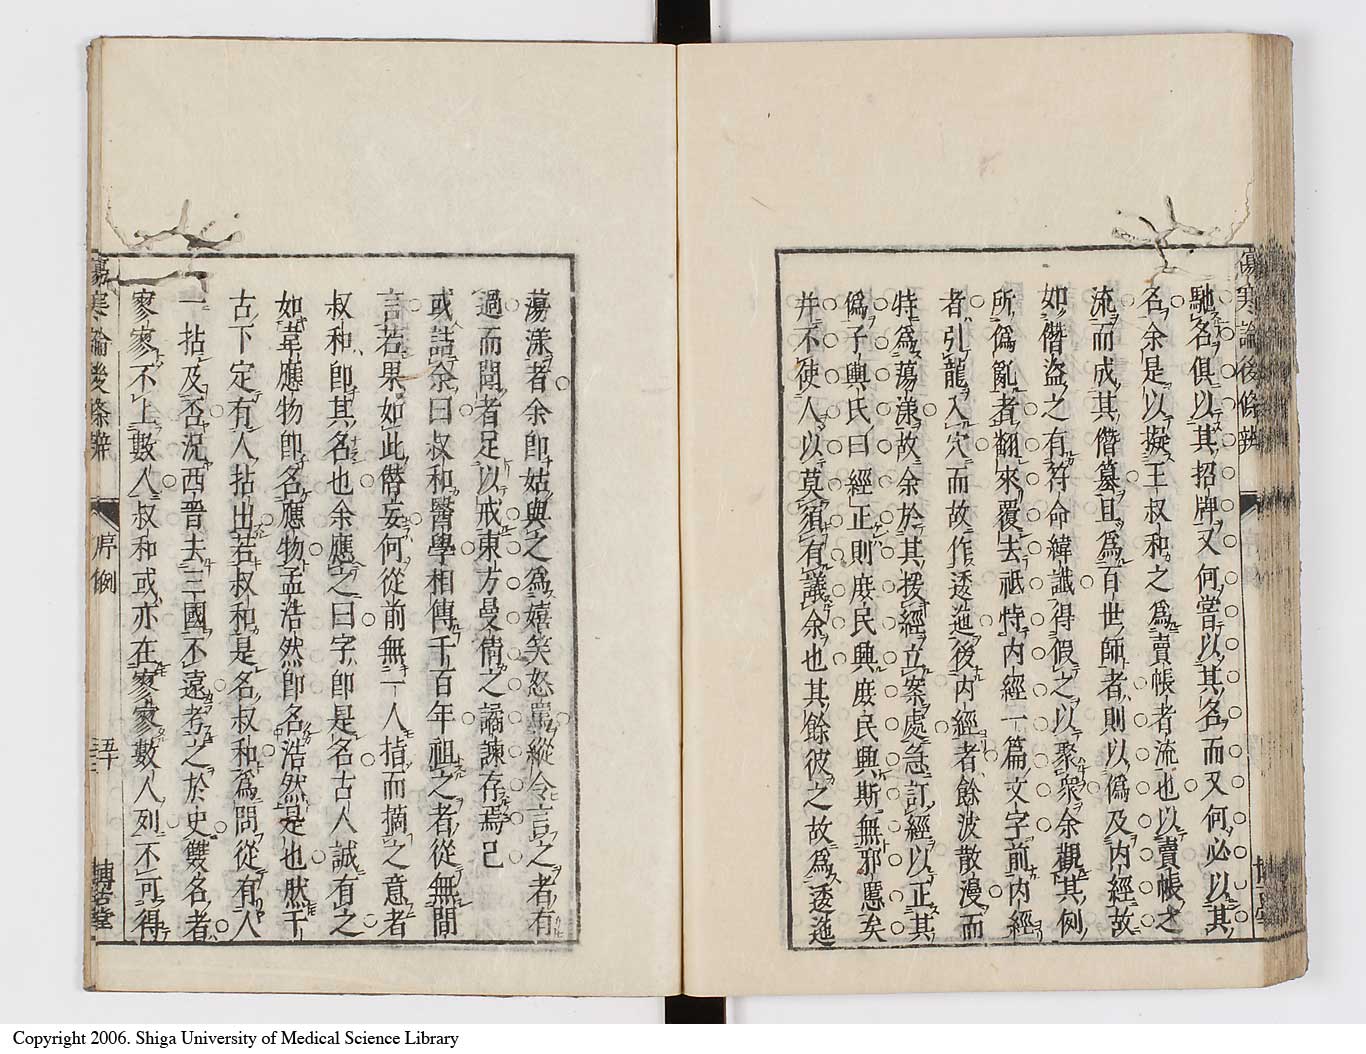 傷寒論後條辨
馳名俱以其招牌又何嘗以其名而又何必以其
名余是以擬王叔和之爲賣帳者流也以賣帳之
流而成其僭篡且爲百世師者則以僞及内經故
如僭盜之有符命緯讖得假之以聚衆余觀其例
所僞亂者翻來覆去祗恃内經一篇文字前内經
者引龍入穴而故作透迤後内經者餘波散漫而
特爲蕩漾故余於其援經立案處急訂經以正其
僞子輿氏曰經正則庶民興庶民興斯無邪慝矣
并不使人以莫須有議余也其餘彼之故爲透迤
蕩漾者余卽姑與之爲嬉笑怒罵縱令言之者有
過而聞者足以戒東方曼倩之譎諫存焉已
或詰余曰叔和醫學相傳千百年祖之者從無間
言若果如此僭妄何從前無一人指而摘之意者
叔和卽其名也余應之曰字卽是名古人誠有之
如韋應物卽名應物孟浩然卽名浩然是也然千
古下定有人拈出若叔和是名叔和爲問從有人
一拈及否況西晉去三國不遠考之於史雙名者
寥寥不上數人叔和或亦在寥寥數人列不可得
傷寒論後條辨
序例
五十三
博古堂